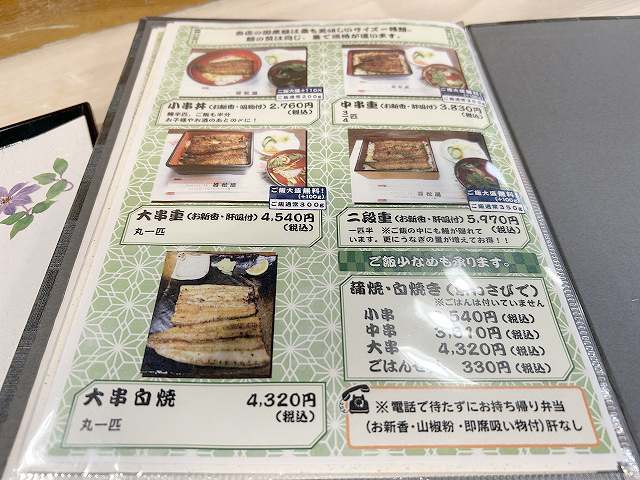 当店の国産鰻は最も美味しいサイズ一種類。
鰻の質は同じ、量で価格が違います。
ご飯大盛+110円
ご飯通常200g
小串丼(お新香・吸物付) 2,760円
(税込)
鰻半匹、ご飯も半分
お子様やお酒のあとの〆に!
ご飯大盛無料!
中串重(お新香・肝吸付) 3,830円
(税込)
3/4匹
若松屋
ご飯大盛無料!
(+100g)
ご飯通常300g
大串重(お新香・肝吸付) 4,540円
(税込)
丸一匹
若松屋
ご飯大盛無料!
(+100g)
ご飯通常350g
二段重(お新香・肝吸付) 5,970円
(税込)
一匹半 ※ご飯の中にも鰻が隠れて
います。更にうなぎの量が増えてお得!!
ご飯少なめも承ります。
蒲焼・白焼き(わさびで)
※ごはんは付いていません
小串 540円(税込)
中串 3,610円(税込)
大串 4,320円(税込)
ごはん 330円(税込)
大串白焼 4,320円
(税込)
丸一匹
※電話で待たずにお持ち帰り弁当
(お新香・山椒粉・即席吸い物付)肝なし